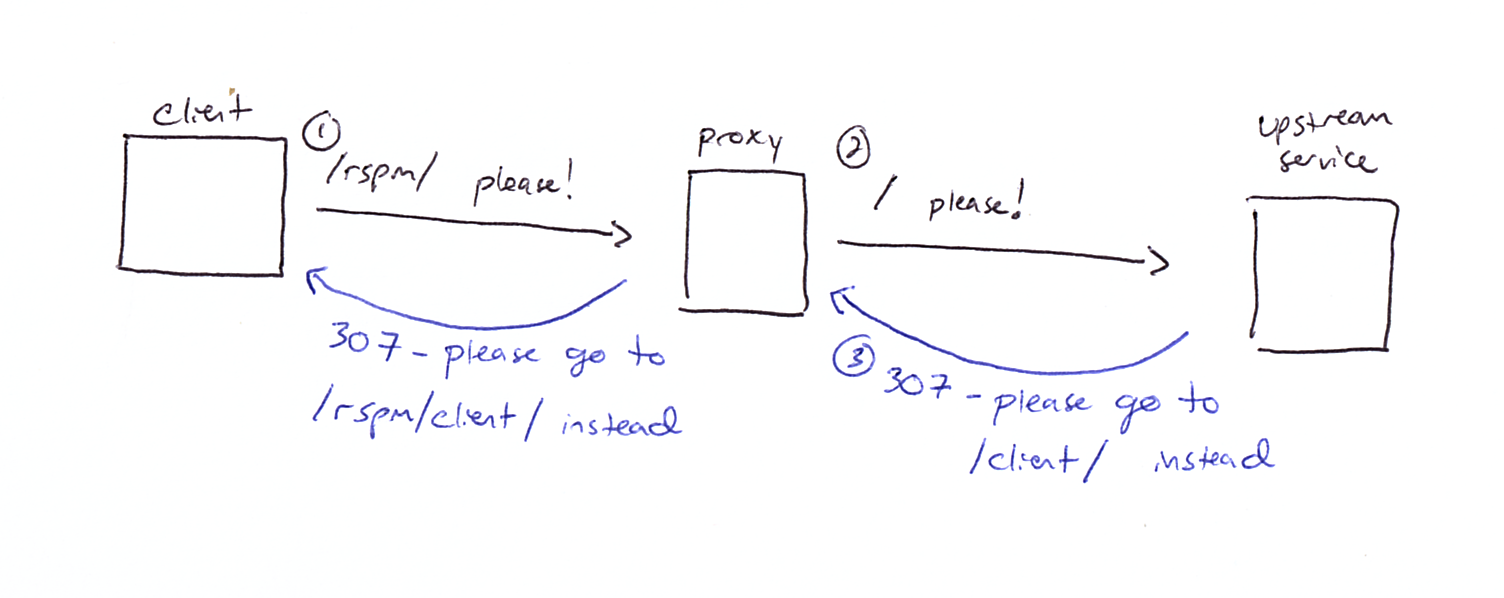 client
①
/rspm/ please!
proxy
②
/ please!
upstream
service
307 - please go to
/rspm/client/ instead
③
307 - please go to
/client/ instead